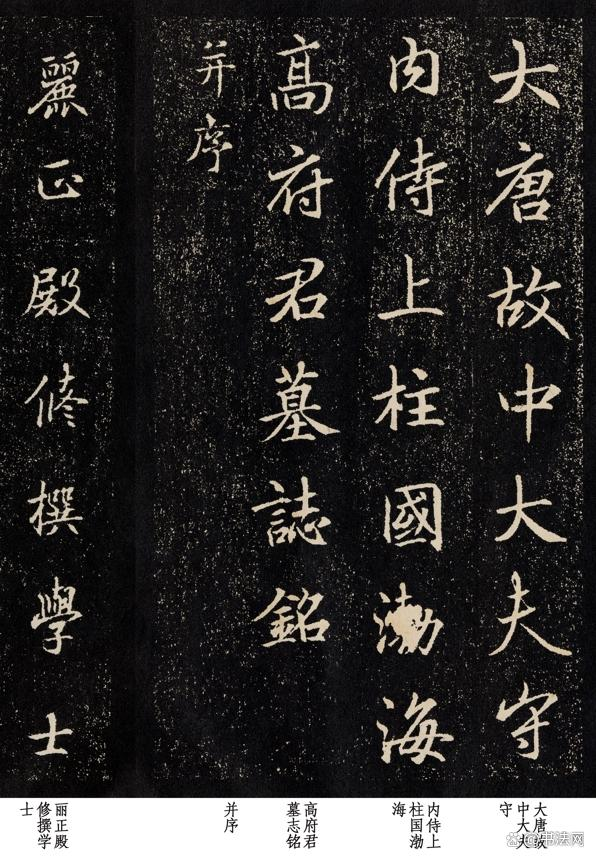 大唐故中大夫守
内侍上柱國渤海
高府君墓誌銘
并序
麗正殿修撰學士
大唐故
中大夫
守
内侍上
柱国渤
海
高府君
墓志铭
并序
丽正殿
修撰学
士
书法网